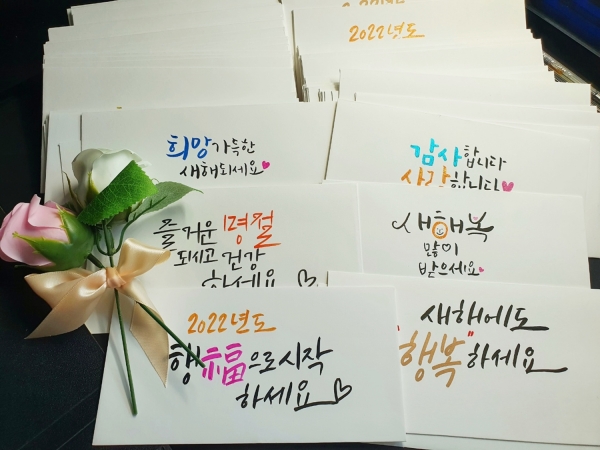 2022년도
희망가득한
새해되세요
감사합니다
사랑합니다
즐거운 명절
되시고 건강
하세요
새해복
많이
받으세요
2022년도
행福으로시작
하세요
새해에도
"행복"하세요